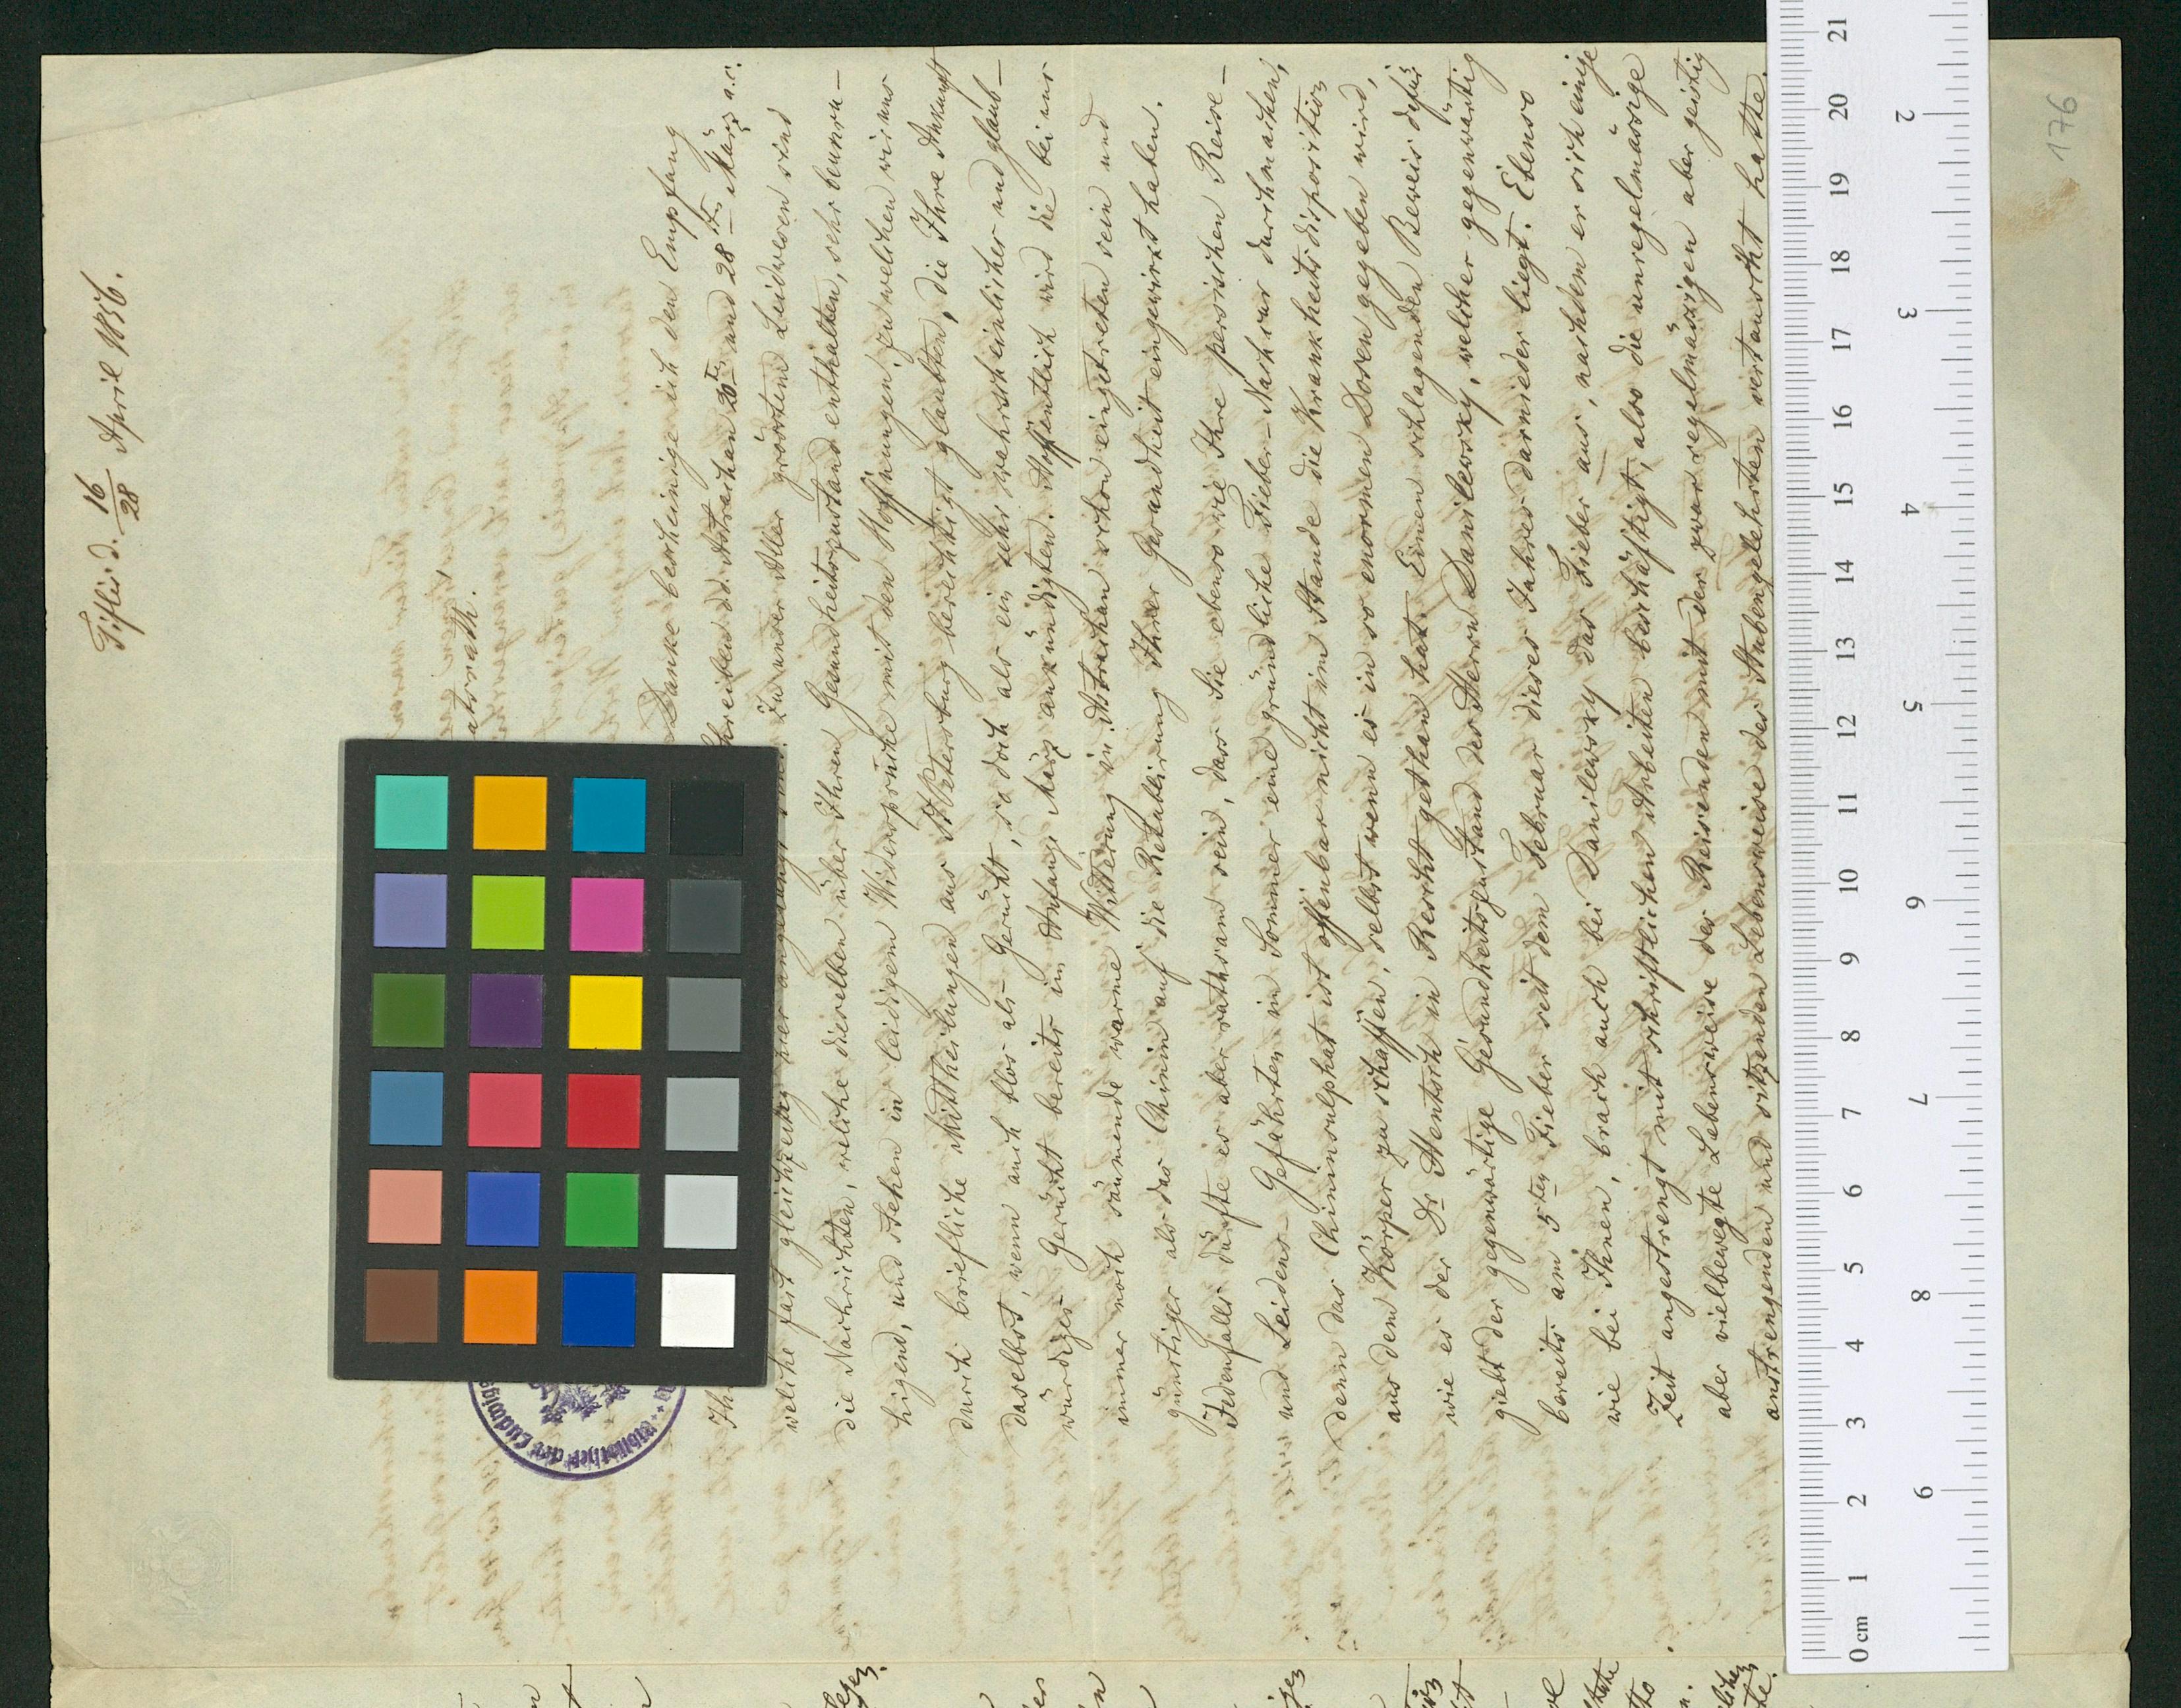 176
Tiflis d. 16/28 April 1856.
atsrath.
Danke bescheinige ich den Empfang
Ih
hreiben dd. Astrachan und 28 März a.c.
welche fast gleichzeitig hier angelangt sind. Zu unser Aller grösstem Leidwesen sind
die Nachrichten, welche dieselben über Ihren Gesundheitszustand enthalten, sehr beunru-
higend, und stehen in leidigem Widerspruche mit den Hoffnungen, zu welchen wir uns
durch briefliche Mittheilungen aus St Petersburg berechtigt glaubten, die Ihre Ankunft
daselbst, wenn auch blos als Gerücht, so doch als ein sehr wahrscheinliches und glaub-
würdiges Gerücht bereits im Anfang März ankündigten. Hoffentlich wird die bei uns
immer noch säumende warme Witterung in Astrachan schon eingetreten sein und
günstiger als das Chinin auf die Retablirung Ihrer Gesundheit eingewirkt haben.
Jedenfalls dürfte es aber rathsam sein, dass Sie ebenso wie Ihre persischen Reise-
und Leidens-Gefährten im Sommer eine gründliche Fieber-Nachcur durchmachen,
denn das Chininsulphat ist offenbar nicht im Stande die Krankheitsdisposition
aus dem Körper zu schaffen, selbst wenn es in so enormen Dosen gegeben wird,
wie es der Dr Hentsch in Rescht gethan hat. Einen schlagenden Beweis dafür
giebt der gegenwärtige Gesundheitszustand des Herrn Danilewsky, welcher gegenwärtig
bereits am 5ten Fieber seit dem Februar dieses Jahres darnieder liegt. Ebenso
wie bei Ihnen, brach auch bei Danilewsky das Fieber aus, nachdem er sich einige
Zeit angestrengt mit schriftlichen Arbeiten beschäftigt, also die unregelmässige
aber vielbewegte Lebensweise des Reisenden mit der zwar regelmässigen aber geistig
anstrengenden und sitzenden Lebensweise des Stubengelehrten vertauscht hatte.
Bibliothek der Ludwigs
0 cm 1 2 3 4 5 6 7 8 9 10 11 12 13 14 15 16 17 18 19 20 21
2 3 4 5 6 7 8 9